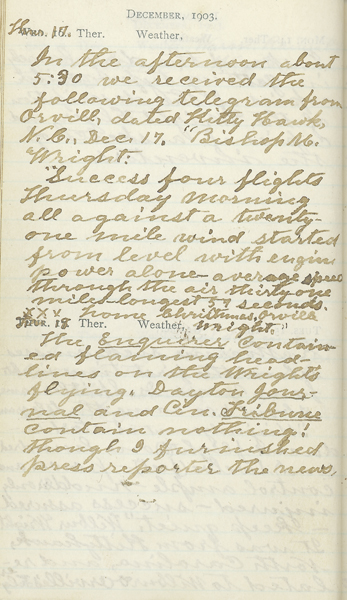 DECEMBER, 1903.
Thurs. 17. Ther. Weather,
In the afternoon about
5:30 we received the
following telegram from
Orvill, dated Kitty Hawk,
N.C., Dec. 17. "Bishop M.
Wright:
"Success four flights
Thursday morning
all against a twenty-
one mile wind started
from level with engine
power alone average speed
through the air thirty-one
miles longest 57 seconds.
XXX home Christmas, Orville
18 Ther. Weather, Wright."
The Enquirer contain-
ed flaming head-
lines on the Wrights
flying. Dayton Jour-
nal and Cin. Tribune
contain nothing!
though I furnished
press reporter the news.